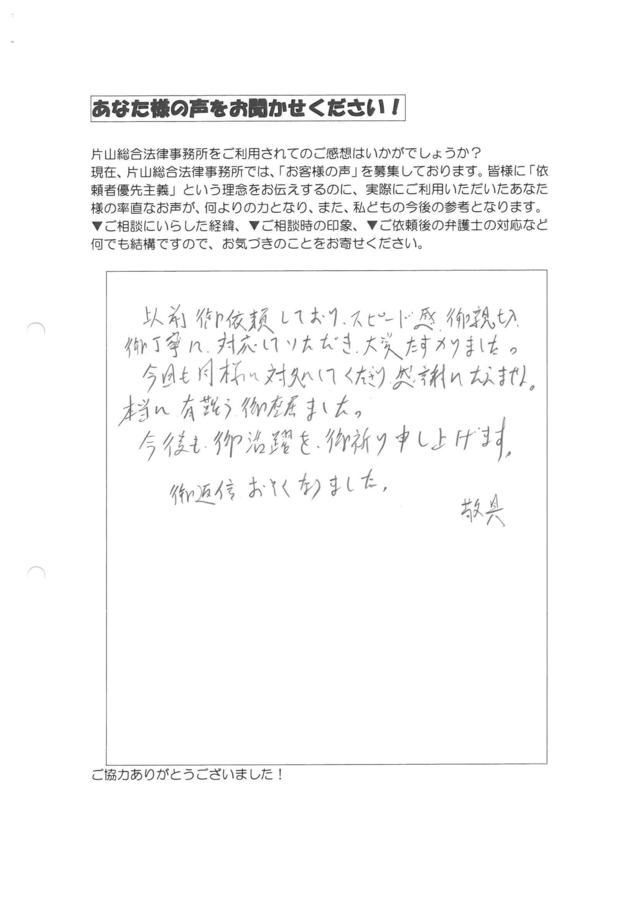 あなた様の声をお聞かせください！
片山総合法律事務所をご利用されてのご感想はいかがでしょうか？
現在、片山総合法律事務所では、「お客様の声」を募集しております。皆様に「依
頼者優先主義」という理念をお伝えするのに、実際にご利用いただいたあなた
様の率直なお声が、何よりの力となり、また、私どもの今後の参考となります。
▼ご相談にいらした経緯、▼ご相談時の印象、▼ご依頼後の弁護士の対応など
何でも結構ですので、お気づきのことをお寄せください。
以前御依頼しており、スピード感、御親切、
御丁寧に、対応していただき、大変たすかりました。
今回も同様に対処してくださり、感謝にたえません。
本当に有難う御座居ました。
今後も、御活躍を、御祈り申し上げます。
御返信おそくなりました。
敬具
ご協力ありがとうございました！